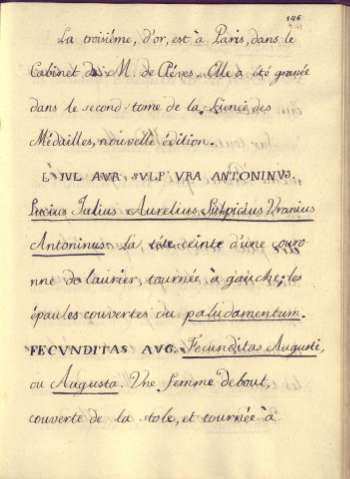 146
La troisiéme, d'or, est à Paris, dans le
Cabinet de M. de Cléves. Elle a été gravée
dans le second tome de la Science des
Médailles, nouvelle édition.
L. IUL AVR. SVLP VRA ANTONINVS.
Lucius Julius Aurelius Sulpicius Uranius
Antoninus. La tête ceinte d'une couro
nne de laurier, tournée à gauche; les
épaules couvertes du paludamentum.
FECVNDITAS AUG. Fecunditas Augusti,
ou Augusta. Une femme debout,
couverte de la stole, et tournée à